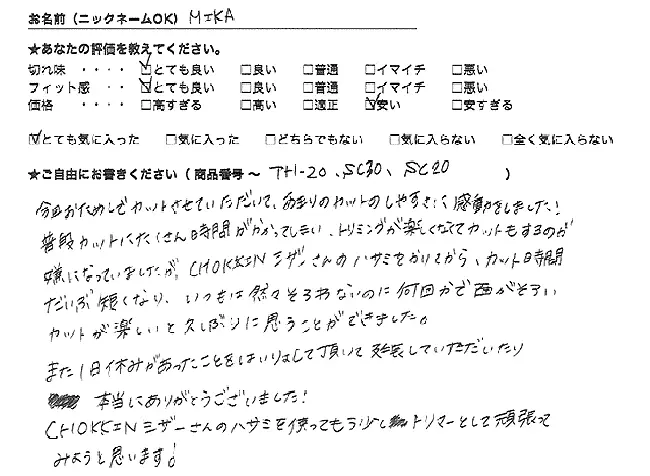 お名前（ニックネームOK） MIKA
★あなたの評価を教えてください。
切れ味 ・・・・ ☑とても良い □良い □普通 □イマイチ □悪い
フィット感 ・・・・ ☑とても良い □良い □普通 □イマイチ □悪い
価格 ・・・・ □高すぎる □高い □適正 ☑安い □安すぎる
☑とても気に入った □気に入った □どちらでもない □気に入らない □全く気に入らない
★ご自由にお書きください（商品番号～ TH-20、SC30、SC20 ）
今回おためしでカットさせていただいて、あまりのカットのしやすさに感動をしました！
普段カットにたくさん時間がかかってしまい、トリミングが楽しくなくてカットもするのが
嫌になっていましたが、CHOKKINシザーさんのハサミをかりてから、カット時間
だいぶ短くなり、いつもは然々そろわないのに何回かで面がそろい
カットが楽しいと久しぶりに思うことができました。
また1日休みがあったことをはいりょして頂いて延長していただいたり
本当にありがとうございました！
CHOKKINシザーさんのハサミを使ってもう少しトリマーとして頑張って
みようと思います！